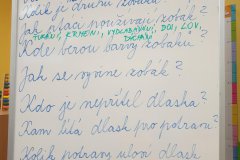 Kolik je druhů zobáků?
Jak ptáci používají zobák?
TRHÁNÍ, KRMENÍ, VYDLABÁVÁNÍ, BOJ, LOV,
Kde berou barvy zobáků?
Jak se vyvine zobák?
Kdo je nepřítel dlaska?
Kam lítá dlask pro potravu?
Kolik potravy uloví dlask